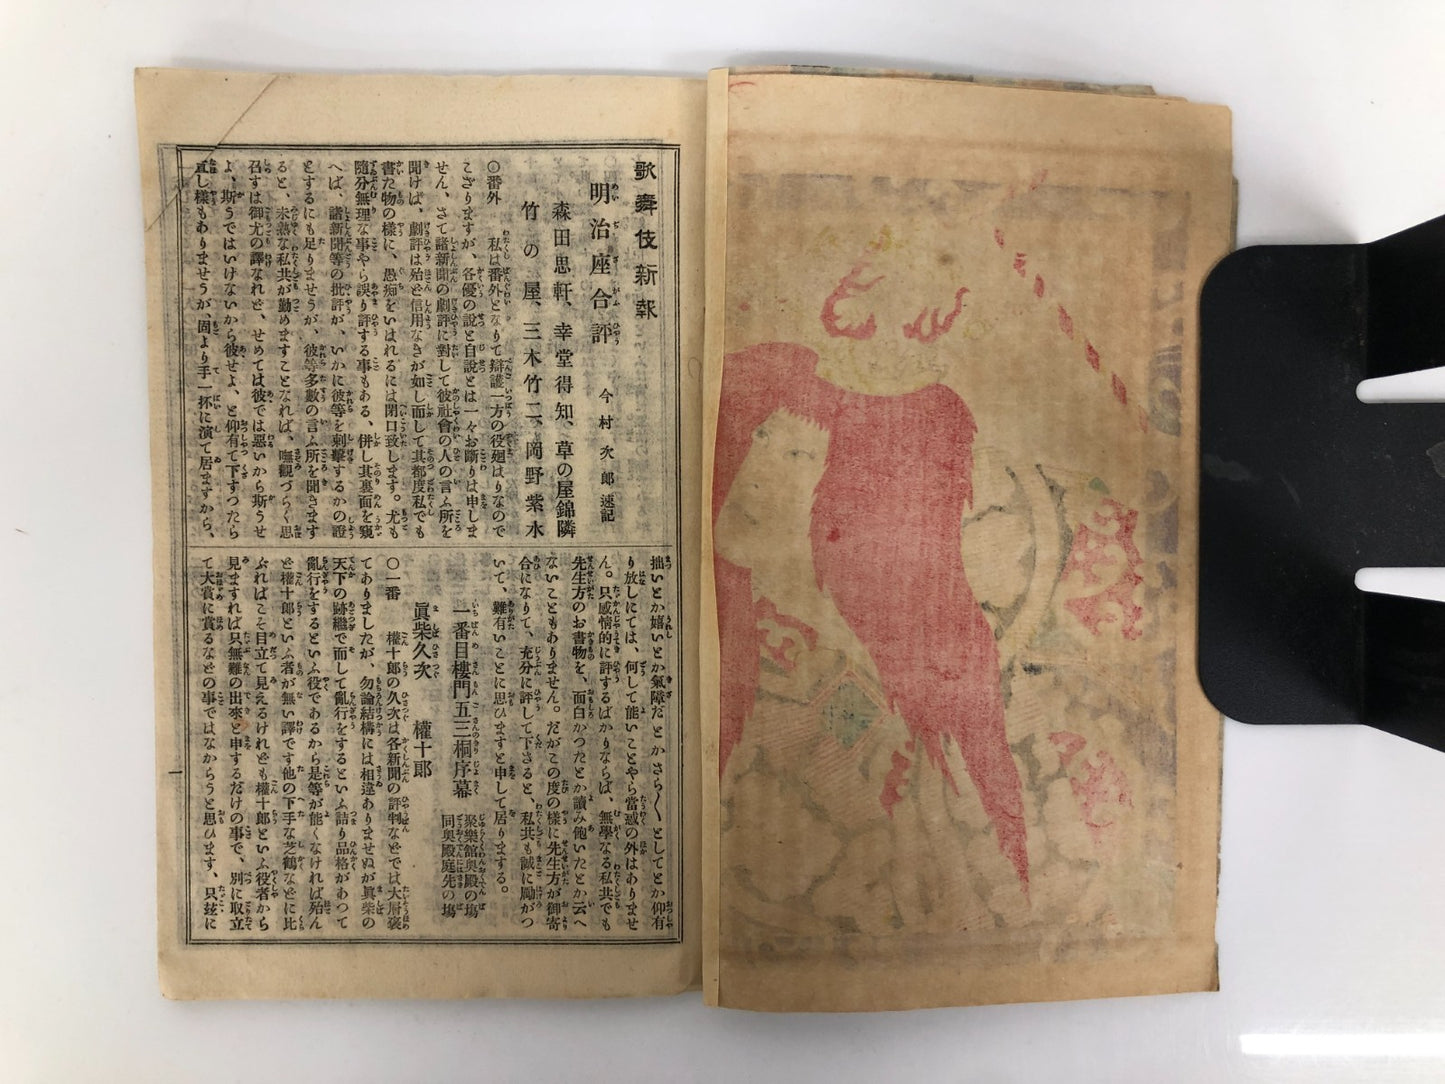 歌舞伎新報
明治座合評
今村次郎速記
森田思軒、幸堂得知、草の屋錦隣
竹の屋、三木竹二、岡野紫水
〇番外 私は番外となりて辯護一方の役廻はりなので
こざりますが、各優の說と自說とは一々お斷りは申しま
せん、さて諸新聞の劇評に對して彼社會の人の言ふ所を
聞けば、劇評は殆ど信用なきが如し而して其都度私でも
書た物の樣に、愚痴をいはれるには閉口致します。尤も
隨分無理な事やら誤り評する事もある、併し其裏面を窺
へば、諸新聞等の批評が、いかに彼等を刺擊するかの證
とするにも足りませうが、彼等多數の言ふ所を聞きます
ると、未熟な私共が勤めますことなれば、嘸觀づらく思
召すは御尤の譯なれど、せめては彼では惡いから斯うせ
よ、斯うではいけないから彼せよ、と仰有て下すつたら
直し樣もありませうが、固より手一杯に演て居ますから、
拙いとか嬉いとか氣障だとかさら〱としてとか仰有
り放しにては、何して能いことやら當惑の外はありませ
ん。只感情的に評するばかりならば、無學なる私共でも
先生方のお書物を、面白かつたとか讀み飽いたとか云へ
ないこともありません。だがこの度の樣に先生方が御寄
合になりて、充分に評して下さると、私共も誠に勵がつ
いて、難有いことに思ひますと申して居りまする。
一番目樓門五三桐序幕 聚樂館奧殿の塲
同奧殿庭先の塲
眞柴久次 權十郞
〇一番 權十郎の久次は各新聞の評判などでは大層褒
てありましたが、勿論結構には相違ありませぬが眞柴の
天下の跡繼で而して亂行をするといふ詰り品格があつて
亂行をするといふ役であるから是等が能くなければ殆ん
ど權十郎といふ者が無い譯です他の下手な芝鶴などに比
ぶればこそ目立て見えるけれども權十郎といふ役者から
見ますれば只無難の出來と申するだけの事で、別に取立
て大賞に賞るなどの事ではなからうと思ひます、只遂に
一